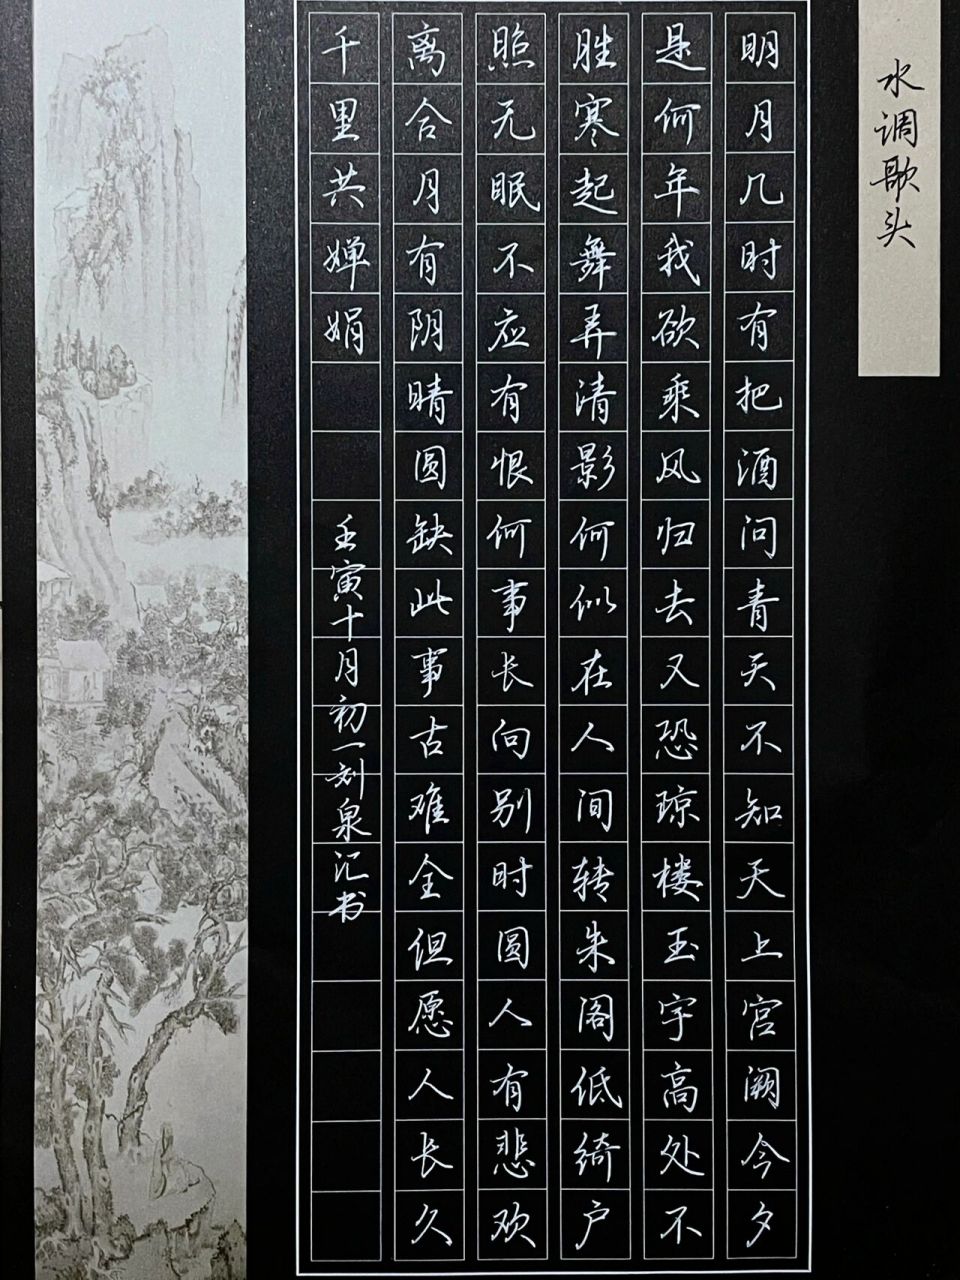 水调歌头
明月几时有把酒问青天不知天上宫阙今夕
是何年我欲乘风归去又恐琼楼玉宇高处不
胜寒起舞弄清影何似在人间转朱阁低绮户
照无眠不应有恨何事长向别时圆人有悲欢
离合月有阴晴圆缺此事古难全但愿人长久
千里共婵娟
壬寅十月初一刘泉汇书